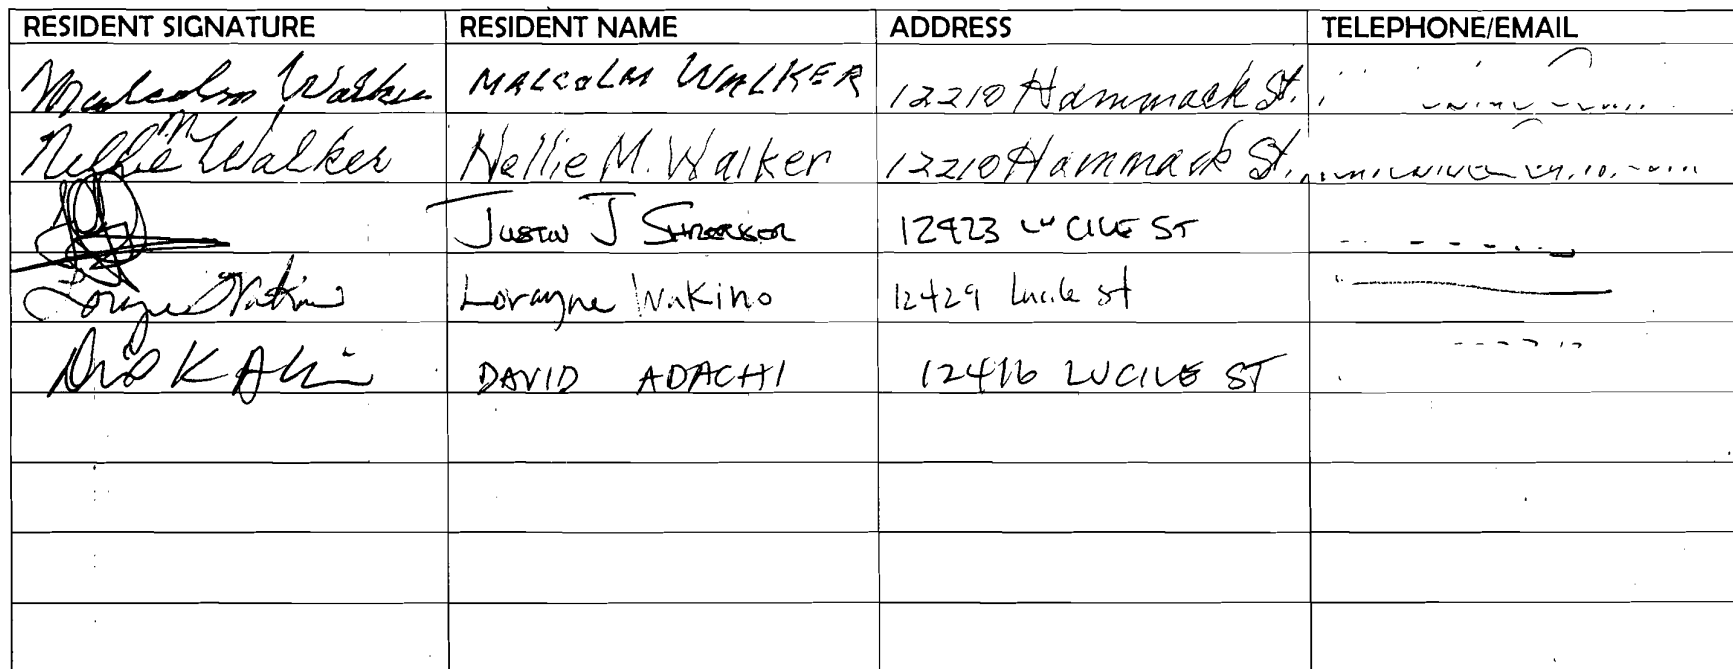 RESIDENT SIGNATURE RESIDENT NAME ADDRESS TELEPHONE/EMAIL
Malcolm Walker MALCOLM WALKER 12210 Hammack St.
Nellie M Walker Nellie M. Walker 12210 Hammack St.
Justin J 12423 LUCILE ST
Lorayne Wakino Lorayne Wakino 12429 Lucile st
DAVID ADACHI LUCILE ST